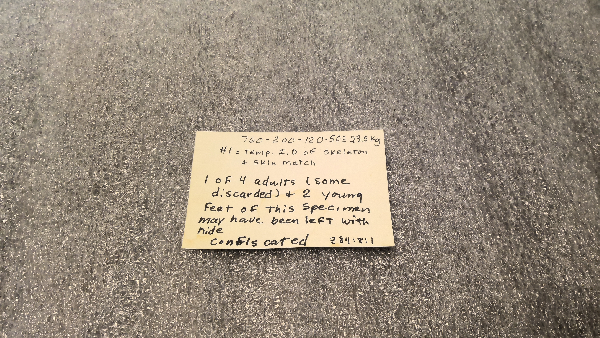 #1 = temp. I.D of skeleton
+ skin match
1 of 4 adults (some
discarded) + 2 young
Feet of This specimen
may have been left with
hide
confiscated